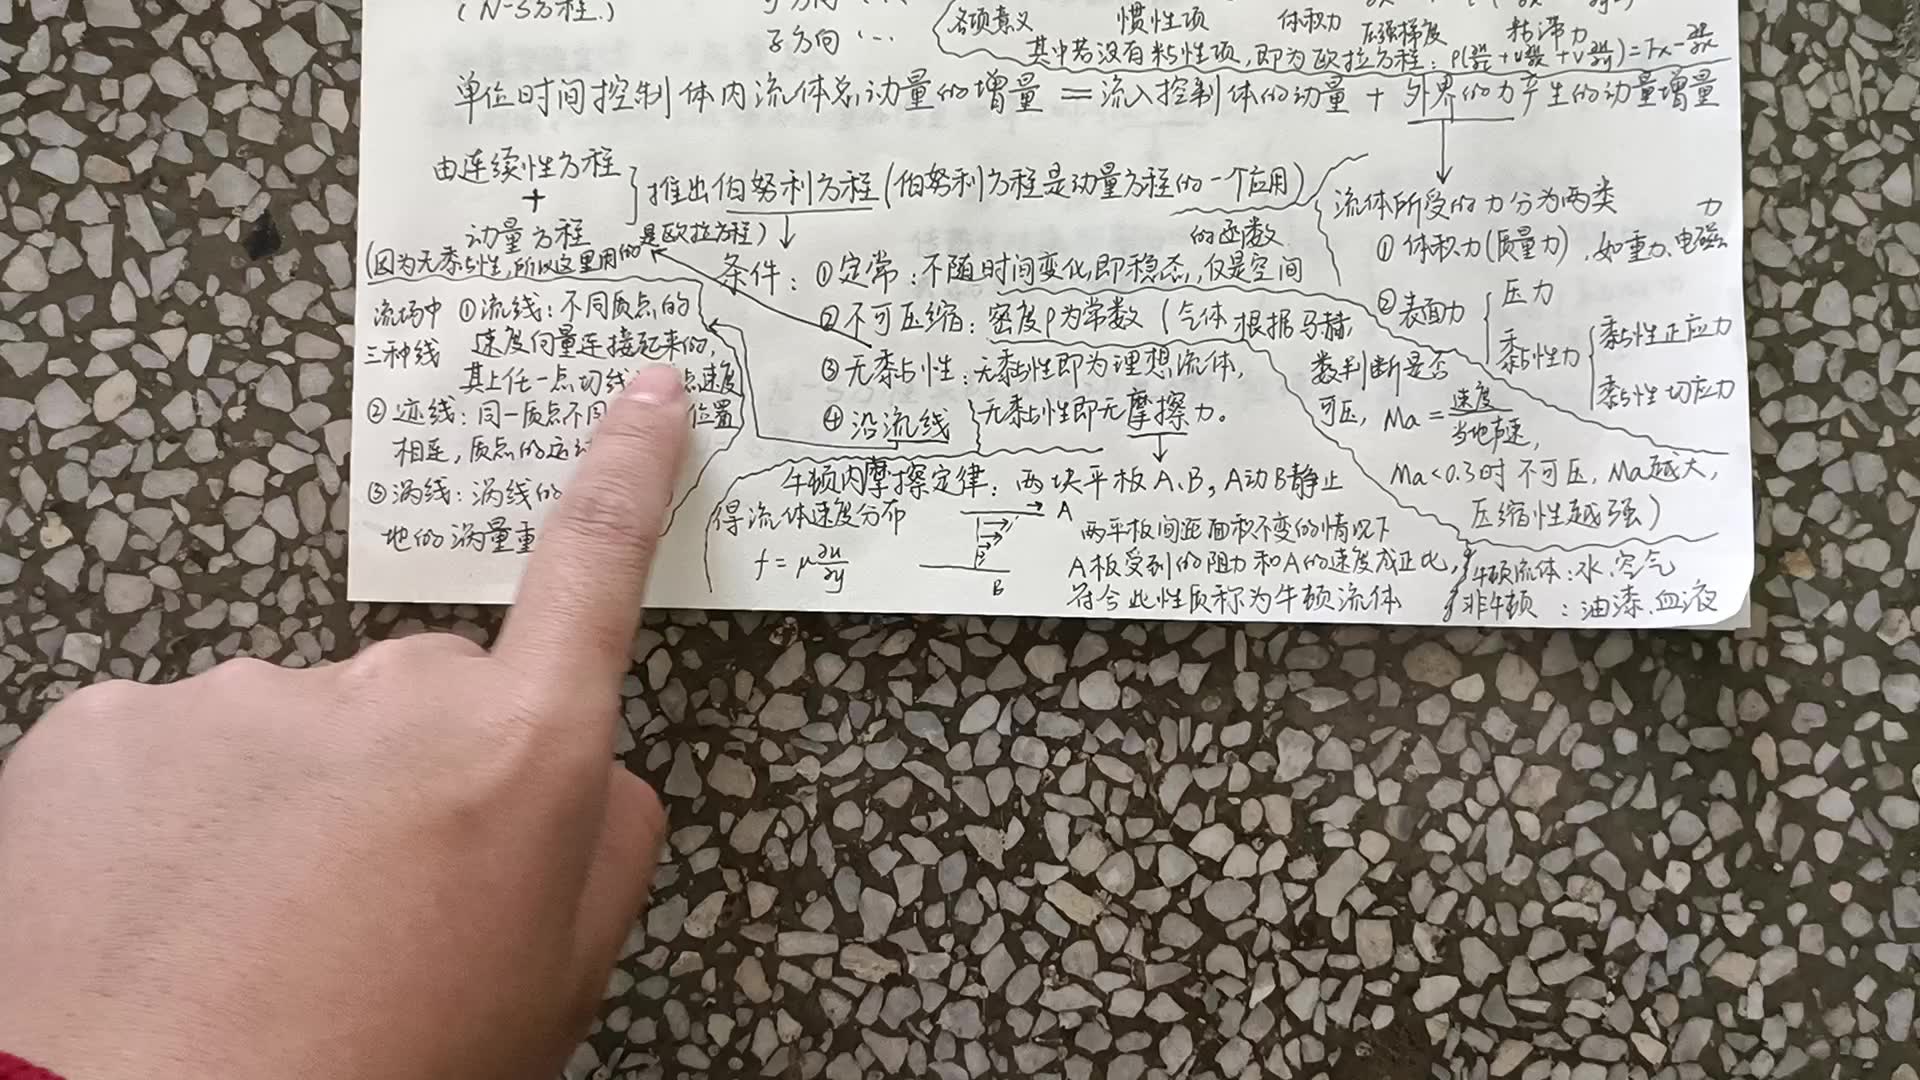 (N-S方程.)
z方向 …
各项意义 惯性项 体积力 压强梯度 粘滞力
其中若没有粘性项,即为欧拉方程:
单位时间控制体内流体总动量的增量 = 流入控制体的动量 + 外界的力产生的动量增量
由连续性方程
+
动量方程
推出伯努利方程(伯努利方程是动量方程的一个应用)
(因为无黏性,所以这里用的是欧拉方程)
条件: ①定常:不随时间变化,即稳态,仅是空间
的函数
②不可压缩:密度ρ为常数(气体根据马赫
数判断是否
可压, Ma = 速度/当地声速,
Ma<0.3时不可压, Ma越大,
压缩性越强)
③无黏性:无黏性即为理想流体,
无黏性即无摩擦力。
④沿流线
流体所受的力分为两类
①体积力(质量力),如重力、电磁力
②表面力 { 压力
黏性力 { 黏性正应力
黏性切应力
流场中
三种线
①流线:不同质点的
速度向量连接起来的,
其上任一点切线 点速度
②迹线:同一质点不同 位置
相连,质点的运
③涡线:涡线的
地的涡量重
牛顿内摩擦定律:两块平板A、B,A动B静止
得流体速度分布
f = μ ∂u/∂y
A
B
两平板间距面积不变的情况下
A板受到的阻力和A的速度成正比,
符合此性质称为牛顿流体
牛顿流体:水、空气
非牛顿 :油漆、血液